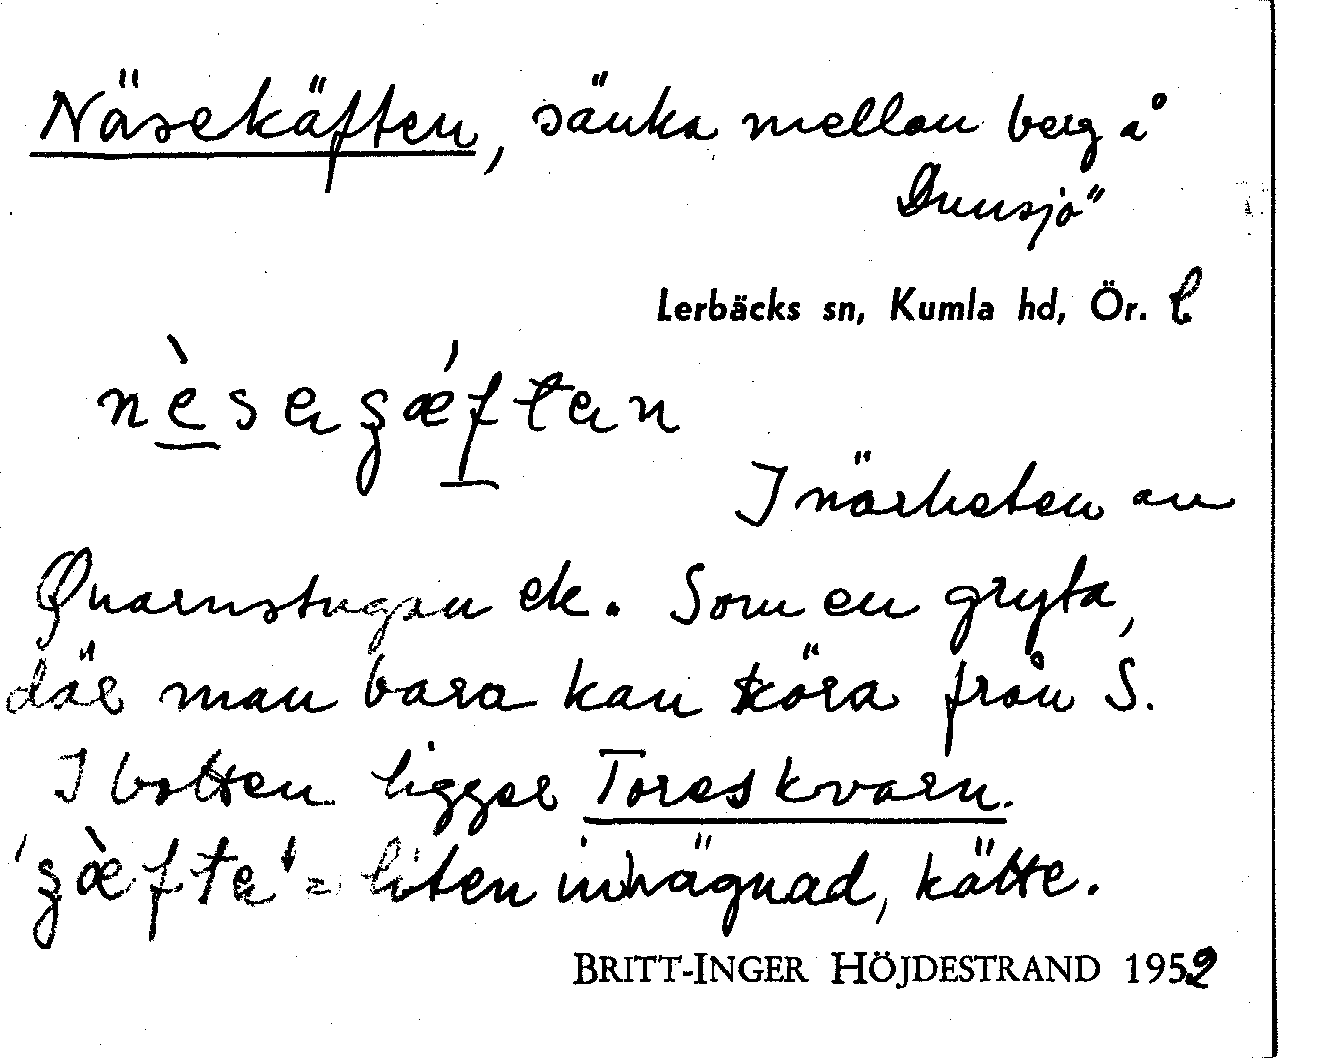 Näsekäften, sänka mellan berg å
Dunsjö
Lerbäcks sn, Kumla hd, Ör. l
nèsaʒǽftan
I närheten av
Qvarnstugan ek. Som en gryta,
där man bara kan köra från S.
I botten ligger Tores kvarn.
'ʒæ̀fta' = liten inhägnad, kätte.
BRITT-INGER HÖJDESTRAND 1952